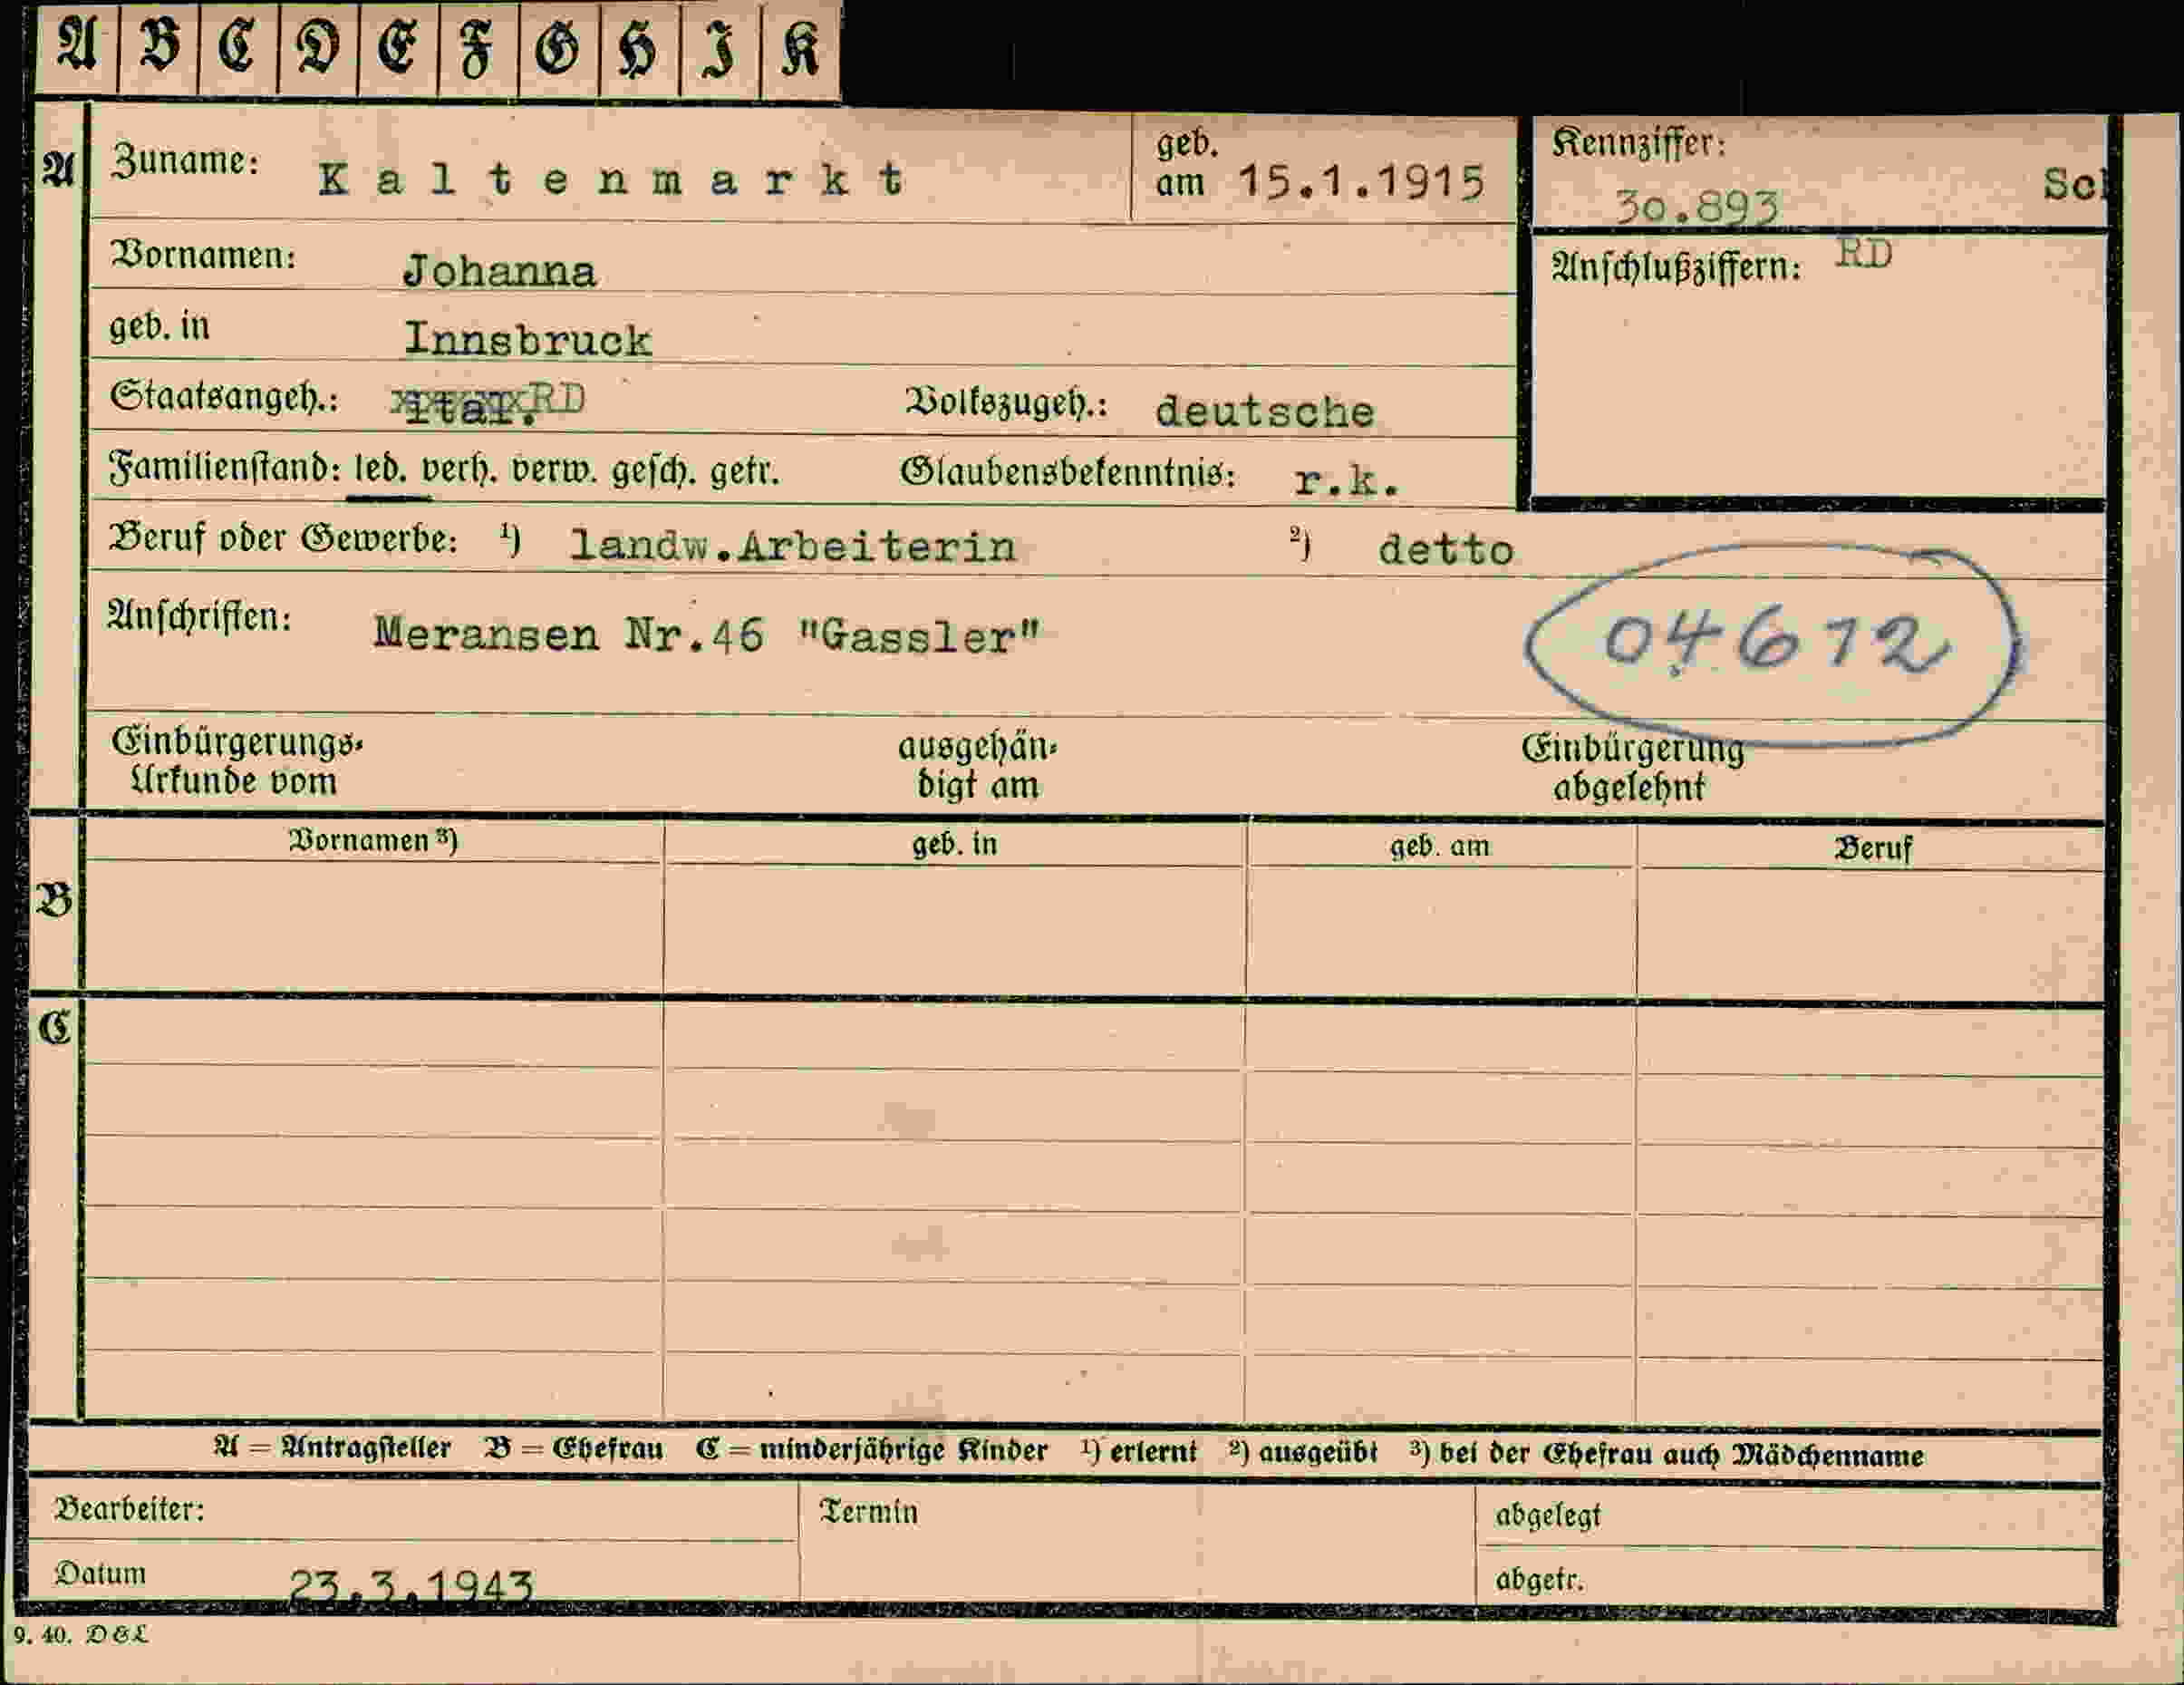 A B C D E F G H I K
A Zuname: Kaltenmarkt geb. am 15.1.1915 Kennziffer: 30.893 Sch
Vornamen: Johanna Anschlußziffern: RD
geb. in Innsbruck
Staatsangeh.: ital. RD Volkszugeh.: deutsche
Familienstand: led. verh. verw. gesch. getr. Glaubensbekenntnis: r.k.
Beruf oder Gewerbe: ¹) landw.Arbeiterin ²) detto
Anschriften: Meransen Nr.46 "Gassler" 04612
Einbürgerungs- ausgehän- Einbürgerung
Urkunde vom digt am abgelehnt
Vornamen ³) geb. in geb. am Beruf
B
C
A = Antragsteller B = Ehefrau C = minderjährige Kinder ¹) erlernt ²) ausgeübt ³) bei der Ehefrau auch Mädchenname
Bearbeiter: Termin abgelegt
Datum 23.3.1943 abgetr.
9. 40. D&L